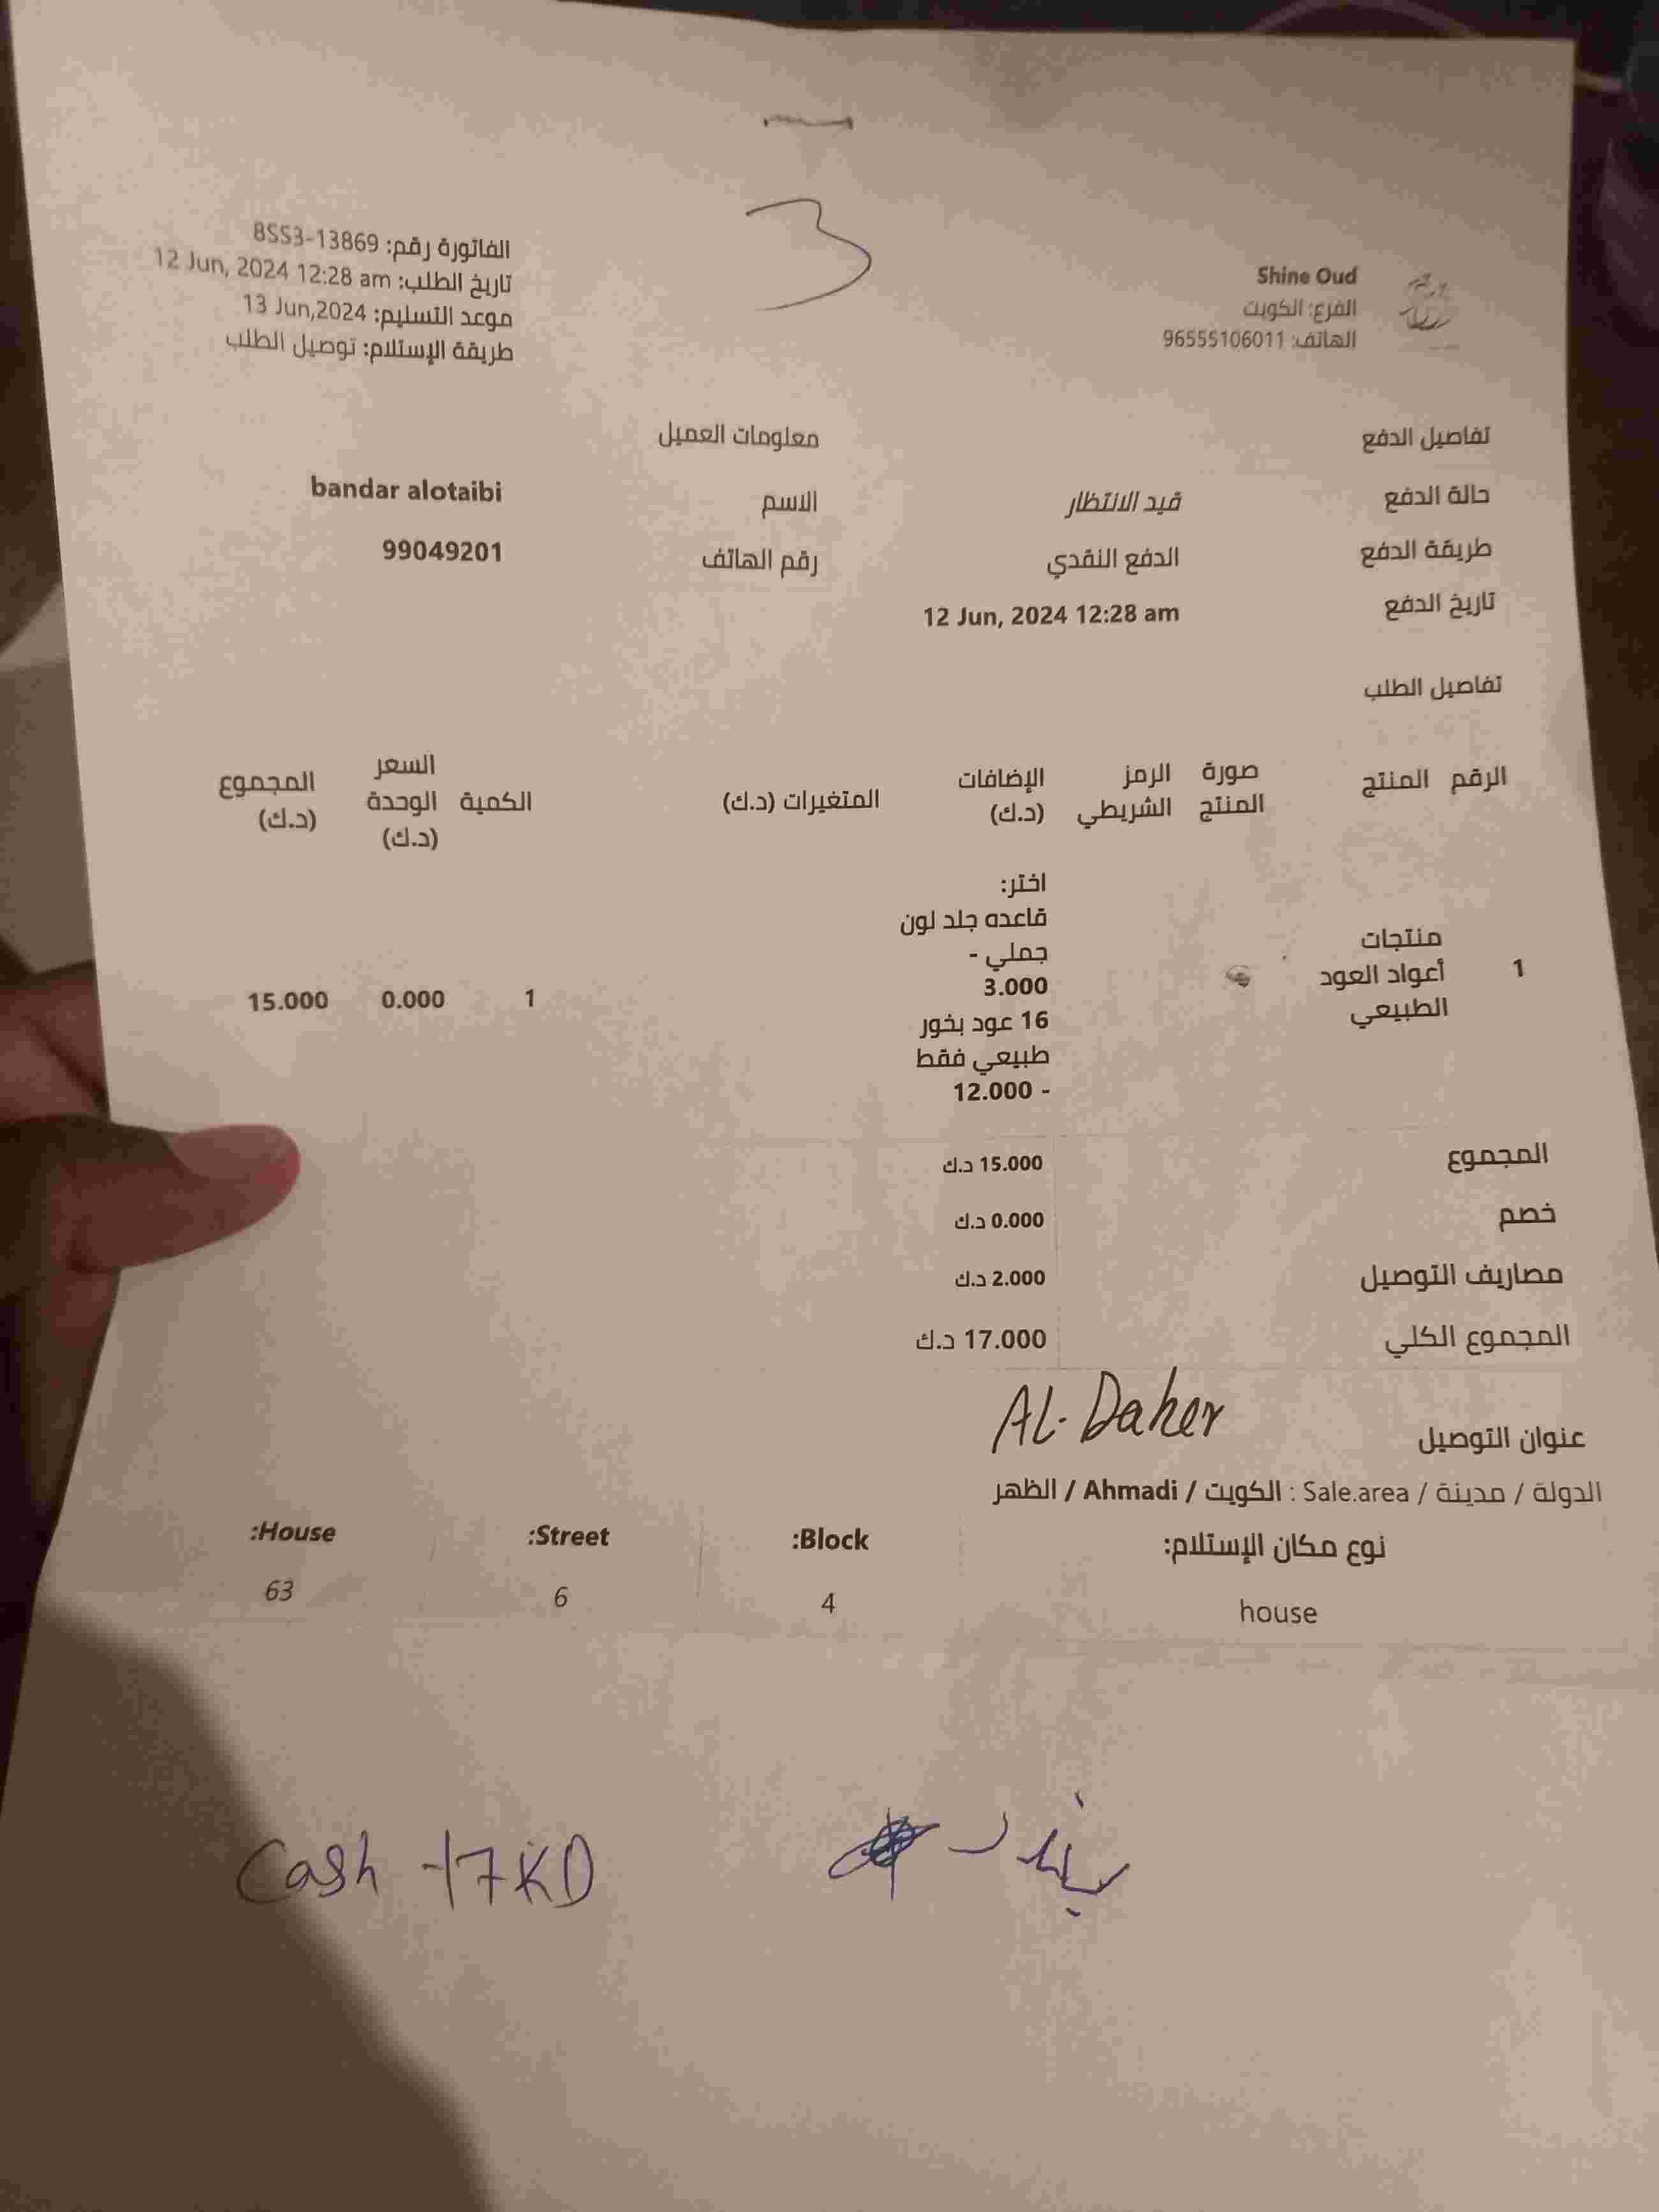 3
Shine Oud
الفرع: الكويت
الهاتف: 96555106011
الفاتورة رقم: 8SS3-13869
تاريخ الطلب: 12 Jun, 2024 12:28 am
موعد التسليم: 13 Jun,2024
طريقة الإستلام: توصيل الطلب
تفاصيل الدفع
حالة الدفع قيد الانتظار
طريقة الدفع الدفع النقدي
تاريخ الدفع 12 Jun, 2024 12:28 am
معلومات العميل
الاسم bandar alotaibi
رقم الهاتف 99049201
تفاصيل الطلب
الرقم المنتج صورة المنتج الرمز الشريطي الإضافات (د.ك) المتغيرات (د.ك) الكمية السعر الوحدة (د.ك) المجموع (د.ك)
1 منتجات أعواد العود الطبيعي
اختر:
قاعده جلد لون
جملي -
3.000
16 عود بخور
طبيعي فقط
- 12.000
1 0.000 15.000
المجموع 15.000 د.ك
خصم 0.000 د.ك
مصاريف التوصيل 2.000 د.ك
المجموع الكلي 17.000 د.ك
AL-Daher
عنوان التوصيل
الدولة / مدينة / Sale.area : الكويت / Ahmadi / الظهر
نوع مكان الإستلام: Block: Street: House:
house 4 6 63
بندر
Cash -17KD